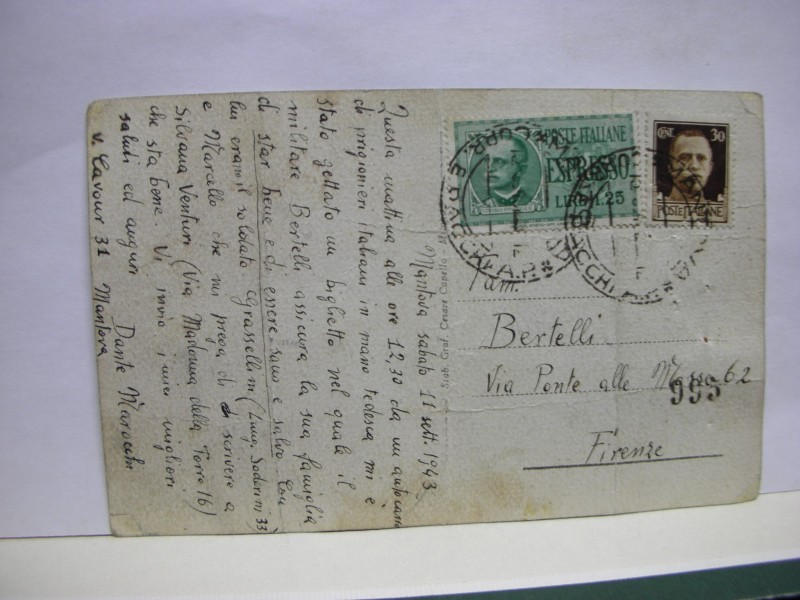 Mantova sabato 11 sett. 1943
Questa mattina alle ore 12,30 da un autocarro
di prigionieri italiani in mano tedesca mi è
stato gettato un biglietto nel quale il
militare Bertelli assicura la sua famiglia
di star bene e di essere sano e salvo. Con
lui era il soldato Grassellini (Lung. Soderini 33)
e Marcello che mi prega di scrivere a
Silvana Venturi (Via Madonna della Torre 16)
che sta bene. Vi invio i miei migliori
saluti ed auguri Dante Marocchi
v. Cavour 31 Mantova
POSTE ITALIANE
ESPRESSO
LIRE 1.25
CENT. 30
POSTE ITALIANE
Fam.
Bertelli
Via Ponte alle Mosse 62
995
Firenze